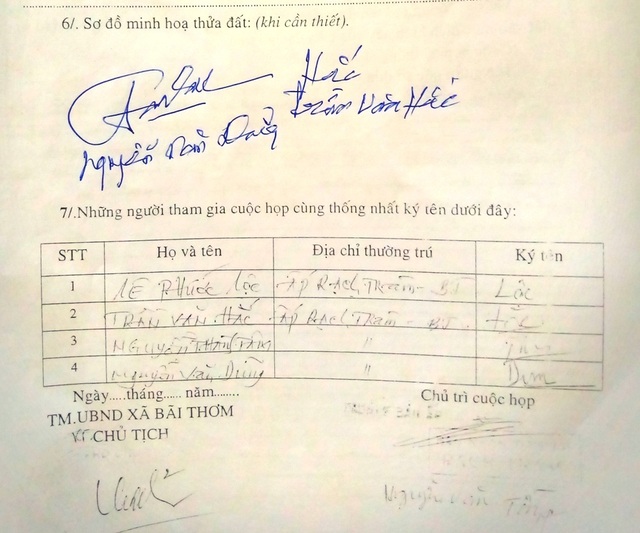 6/. Sơ đồ minh hoạ thửa đất: (khi cần thiết).
Hắc
Trần Văn Hắc
Nguyễn Văn Dũng
7/.Những người tham gia cuộc họp cùng thống nhất ký tên dưới đây:
STT Họ và tên Địa chỉ thường trú Ký tên
1 LÊ PHƯỚC Lộc ẤP RẠCH TRÀM - BT Lộc
2 TRẦN VĂN HẮC ẤP RẠCH TRÀM - BT Hắc
3 NGUYỄN THÀNH TÂM "
4 Nguyễn Văn Dũng "
Ngày.....tháng...... năm........ Chủ trì cuộc họp
TM.UBND XÃ BÃI THƠM
KT.CHỦ TỊCH
Nguyễn Văn